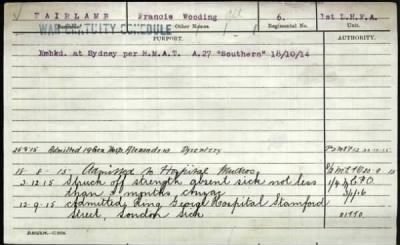 FAIRLAMB Francis Wooding 6. 1st L.H.F.A.
WAR GRATUITY SCHEDULE
Other Names. Regimental No. Unit.
PURPORT. AUTHORITY.
Embkd. at Sydney per H.M.A.T. A.27 "Southern" 18/10/14
Admitted 19 Gen Hosp. Alexandria Dysentery
18 - 8 - 15 Admitted to Hospital Mudros
3.12.15 Struck off strength absent sick not less
than 3 months
12.9.15 admitted King George Hospital Stamford
Street, London Sick